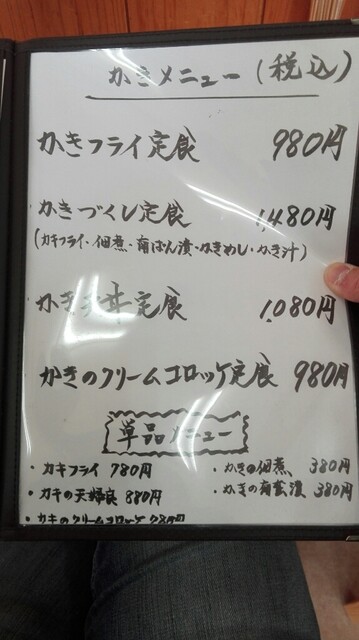 かきメニュー(税込)
かきフライ定食 980円
かきづくし定食 1,480円
(カキフライ・佃煮・南ばん漬・かきめし・かき汁)
かき天丼定食 1,080円
かきのクリームコロッケ定食 980円
単品メニュー
・カキフライ 780円
・かきの佃煮 380円
・カキの天婦良 880円
・かきの南蛮漬 380円
・カキのクリームコロッケ 780円